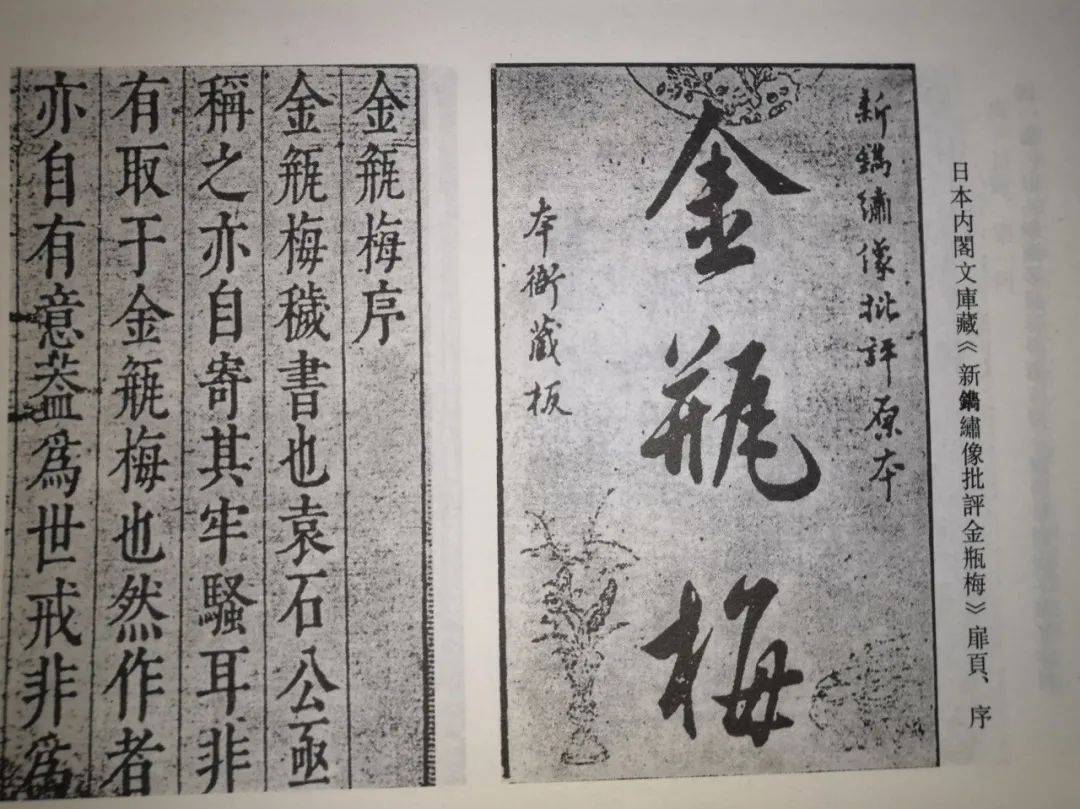 日本内閣文庫藏《新鐫繡像批評金瓶梅》扉頁、序
新鐫繡像批評原本
金瓶梅
本衙藏板
金瓶梅序
金瓶梅穢書也袁石公亟
稱之亦自寄其牢騷耳非
有取于金瓶梅也然作者
亦自有意葢爲世戒非爲